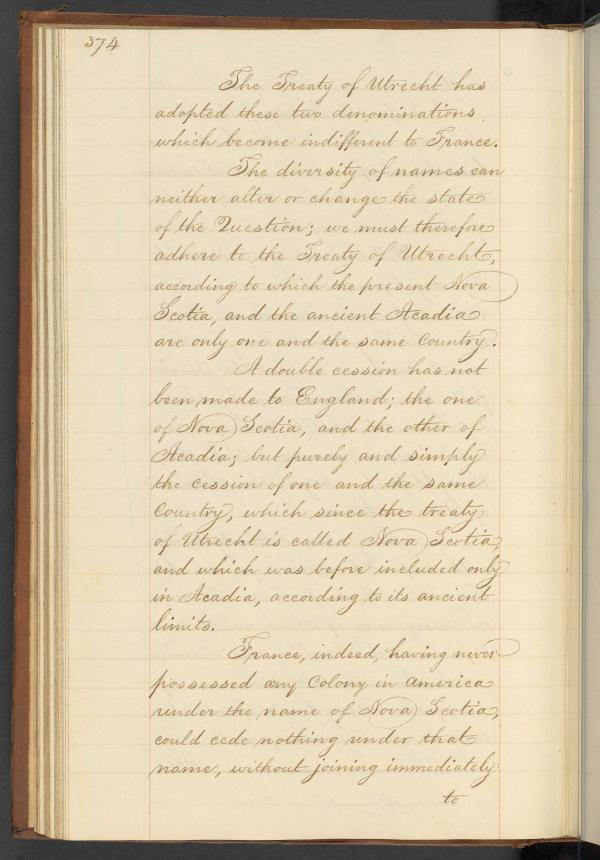 374
The Treaty of Utrecht has
adopted these two denominations
which become indifferent to France.
The diversity of names can
neither alter or change the state
of the Question; we must therefore
adhere to the Treaty of Utrecht,
according to which the present Nova
Scotia, and the ancient Acadia
are only one and the same Country.
A double cession has not
been made to England; the one
of Nova Scotia, and the other of
Acadia; but purely and simply
the cession of one and the same
Country, which since the treaty
of Utrecht is called Nova Scotia,
and which was before included only
in Acadia, according to its ancient
limits.
France, indeed, having never
possessed any Colony in America
under the name of Nova Scotia,
could cede nothing under that
name, without joining immediately
to